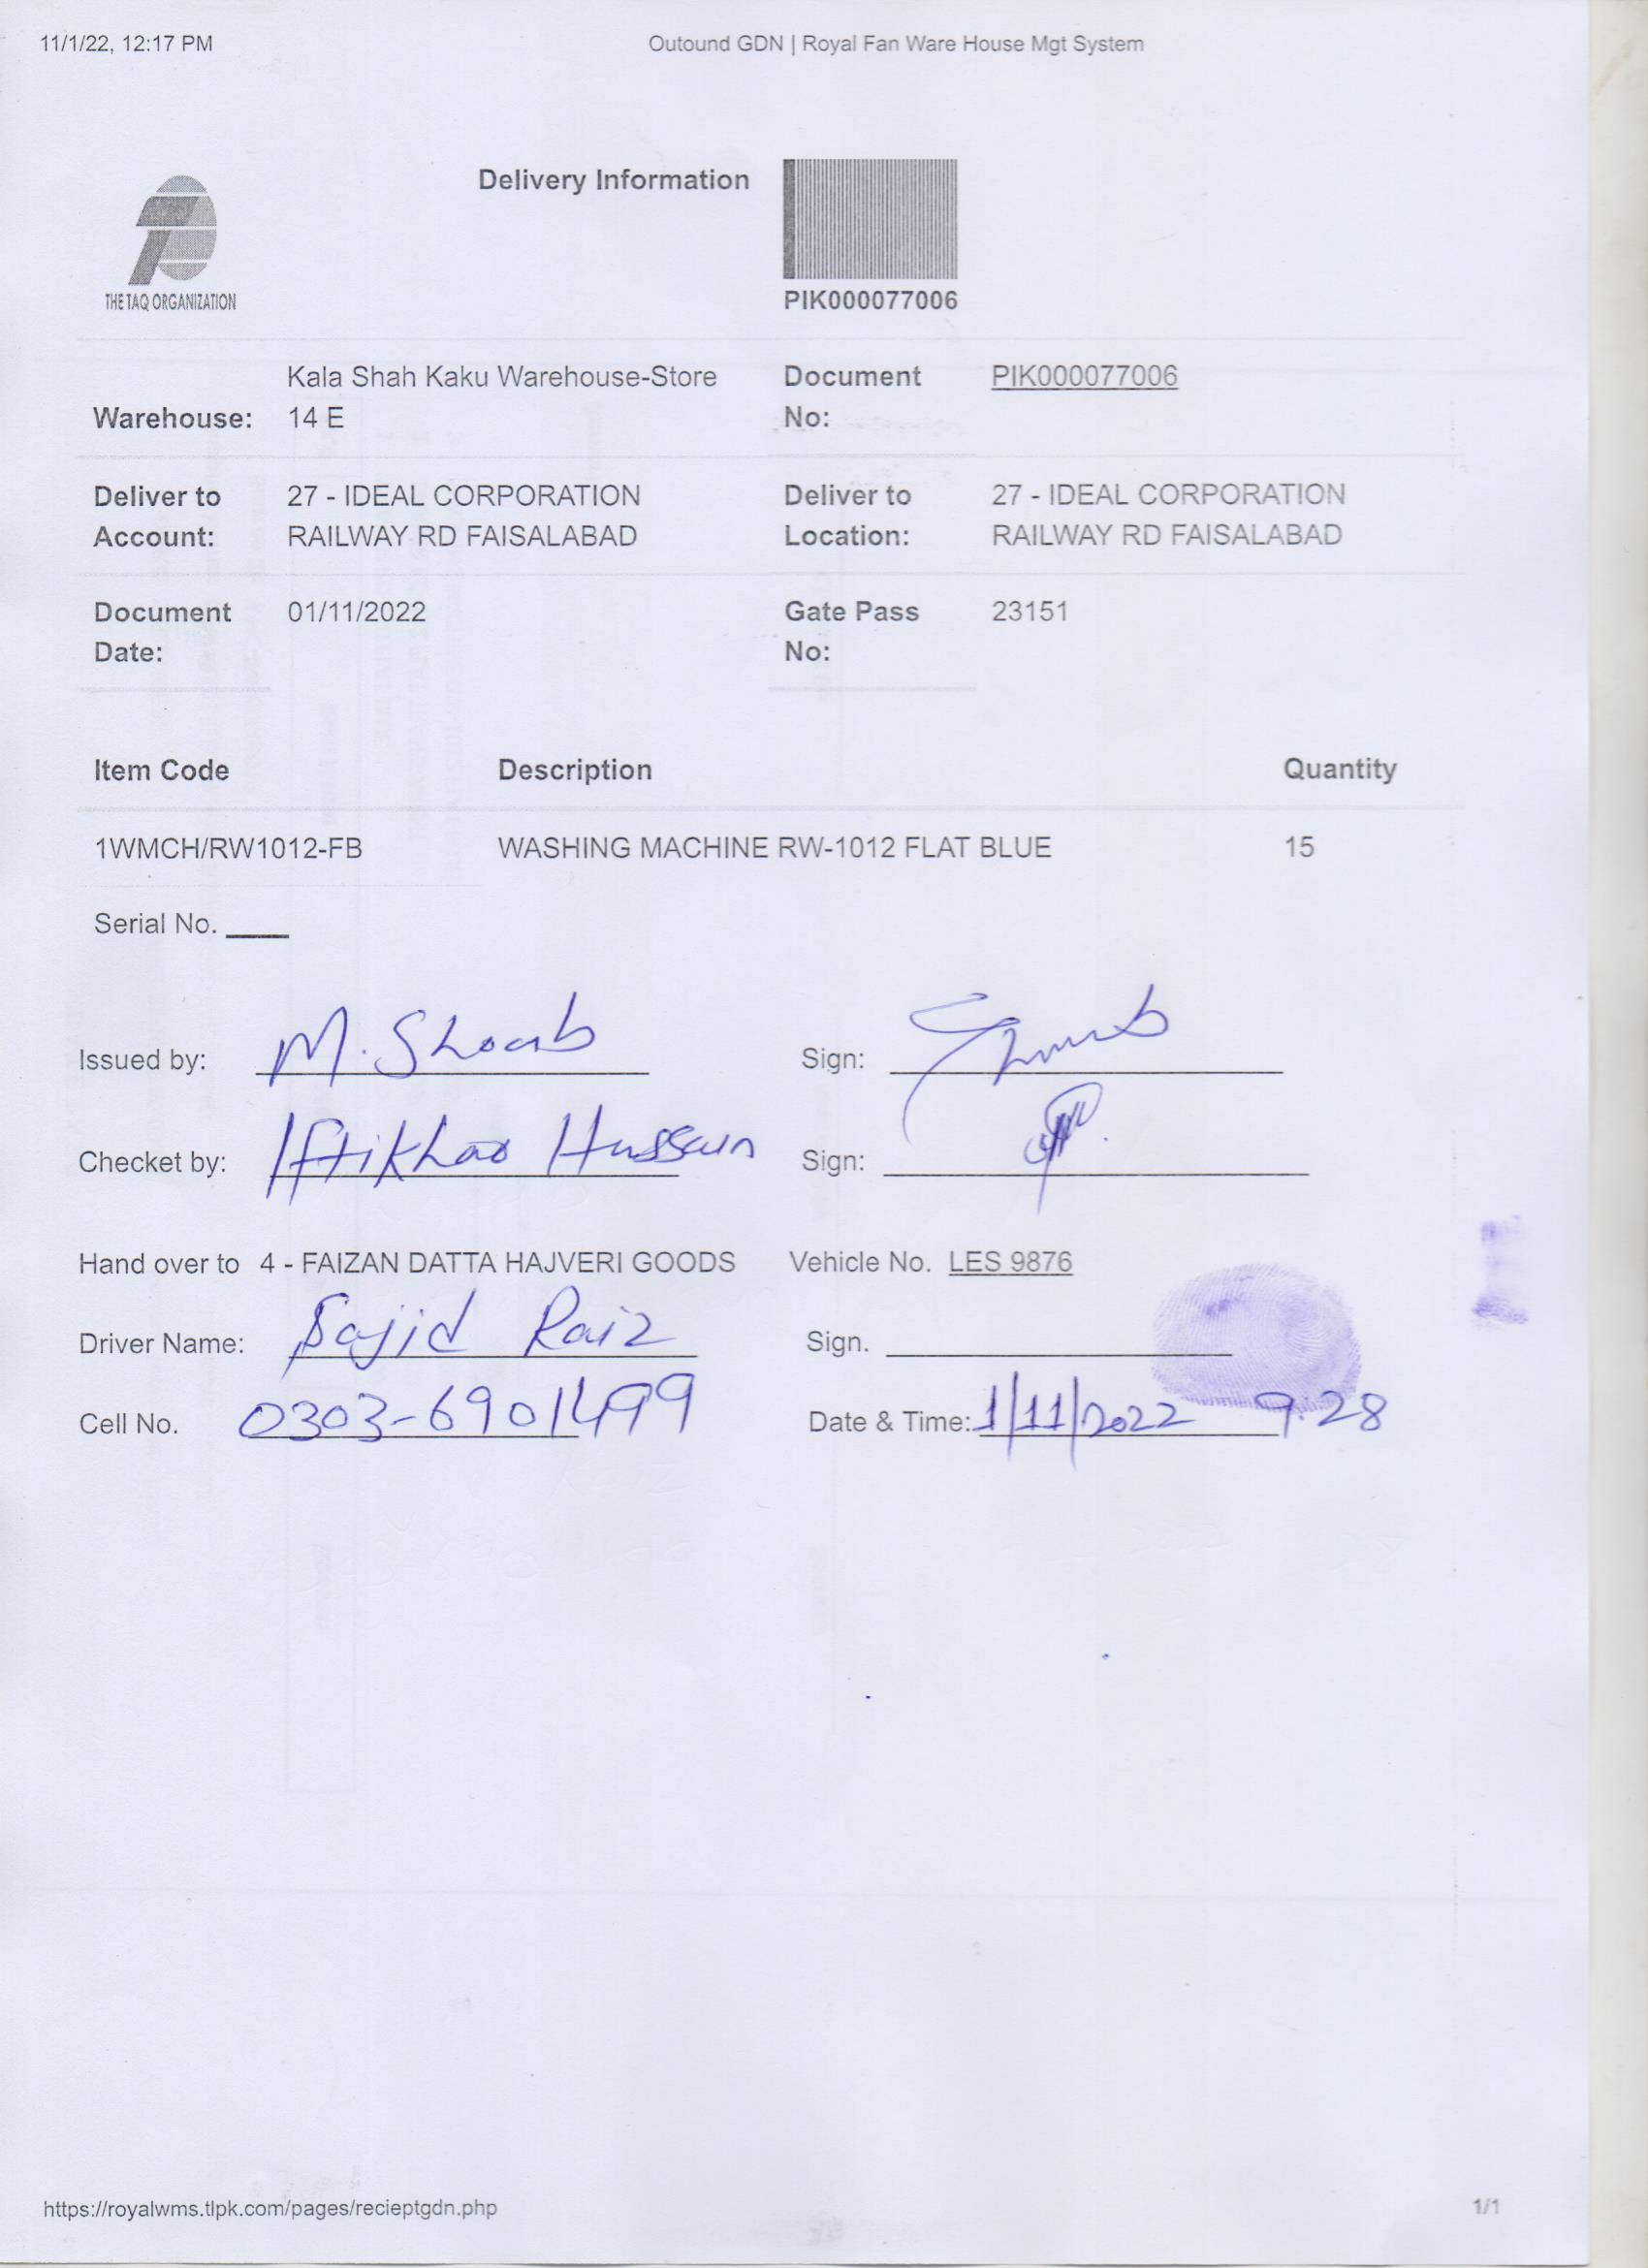 11/1/22, 12:17 PM Outound GDN | Royal Fan Ware House Mgt System
Delivery Information
THE TAQ ORGANIZATION
PIK000077006
Kala Shah Kaku Warehouse-Store Document PIK000077006
Warehouse: 14 E No:
Deliver to 27 - IDEAL CORPORATION Deliver to 27 - IDEAL CORPORATION
Account: RAILWAY RD FAISALABAD Location: RAILWAY RD FAISALABAD
Document 01/11/2022 Gate Pass 23151
Date: No:
Item Code Description Quantity
1WMCH/RW1012-FB WASHING MACHINE RW-1012 FLAT BLUE 15
Serial No.
Issued by: M. Shoaib Sign:
Checket by: Iftikhar Hussain Sign:
Hand over to 4 - FAIZAN DATTA HAJVERI GOODS Vehicle No. LES 9876
Driver Name: Sajid Raiz Sign.
Cell No. 0303-6901499 Date & Time: 1/11/2022 9:28
https://royalwms.tlpk.com/pages/recieptgdn.php 1/1